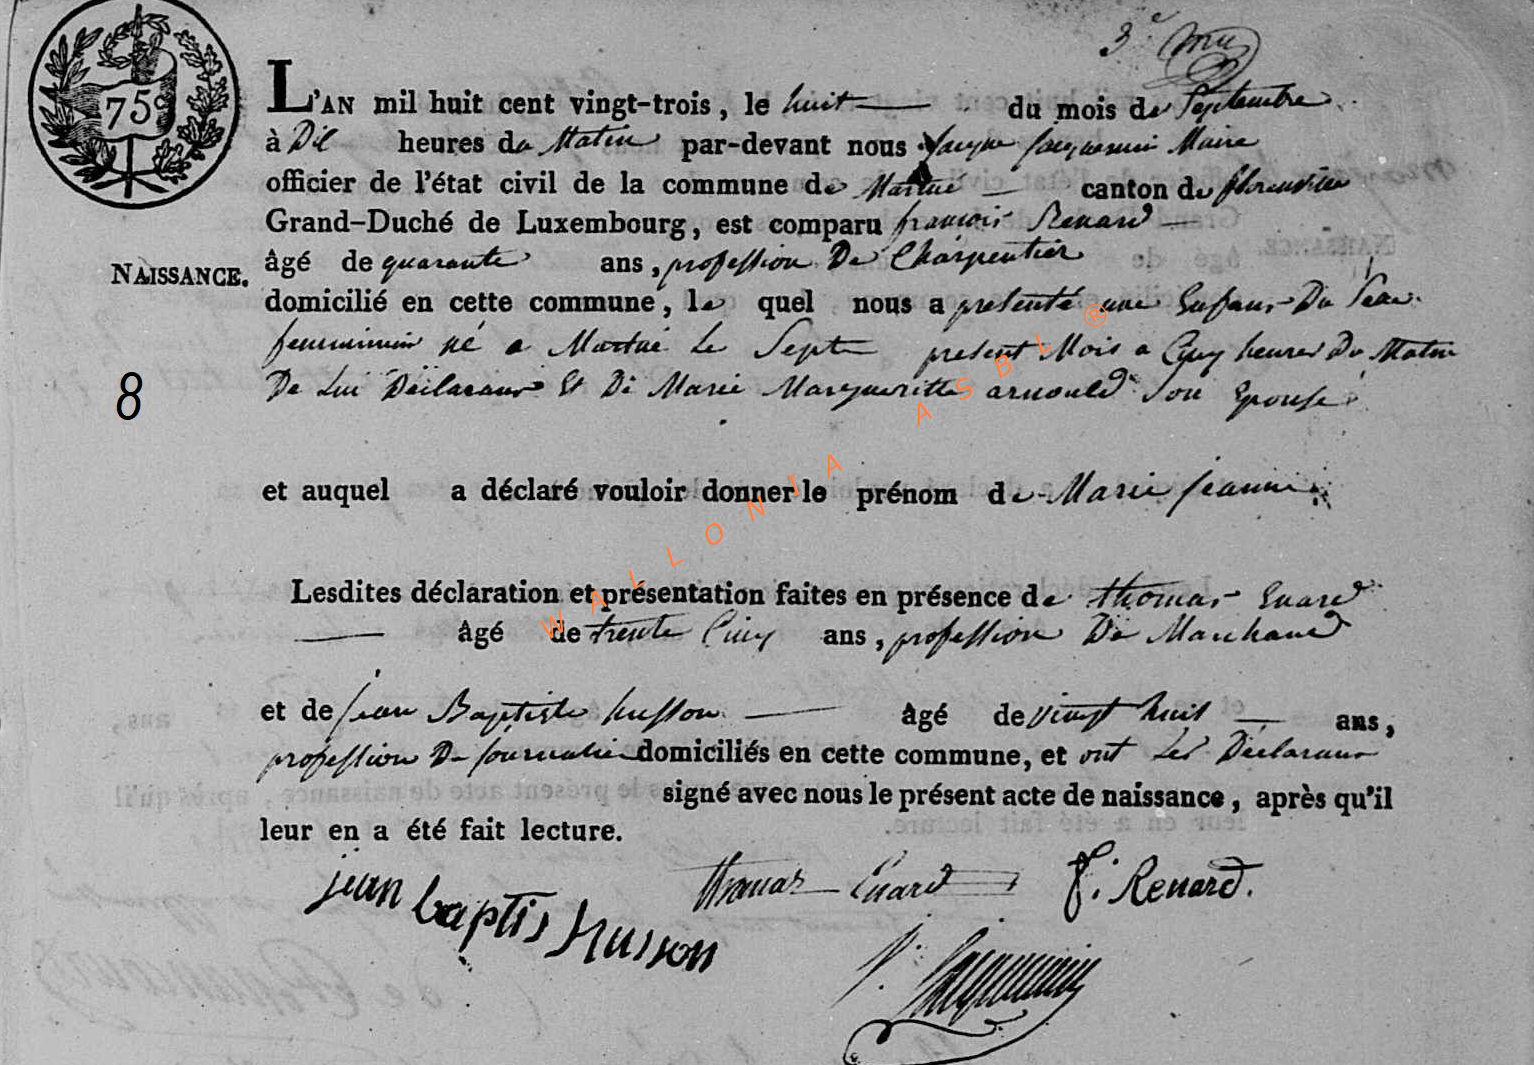 3e
75c
L'AN mil huit cent vingt-trois, le huit du mois de Septembre
à Dix heures du Matin par-devant nous Jacque Jacquemin Maire
officier de l'état civil de la commune de Martué canton de florenville
Grand-Duché de Luxembourg, est comparu françois Renard
NAISSANCE.
âgé de quarante ans, profession De Charpentier
domicilié en cette commune, le quel nous a presenté une Enfant Du Sexe
feminimin né a Martué Le Sept present Mois a Cinq heures Du Matin
De Lui Déclarant Et De Marie Margueritte arnould Son Epouse
8
et auquel a déclaré vouloir donner le prénom de Marie jeanne
Lesdites déclaration et présentation faites en présence de thomas Evard
âgé de trente Cinq ans, profession De Marchand
et de jean Baptiste husson âgé de vingt huit ans,
profession De journalier domiciliés en cette commune, et ont Les Déclarant
signé avec nous le présent acte de naissance, après qu'il
leur en a été fait lecture.
jean baptis husson
thomas Evard
f. Renard.
J. Jacquemin
WALLONIA ASBL ®